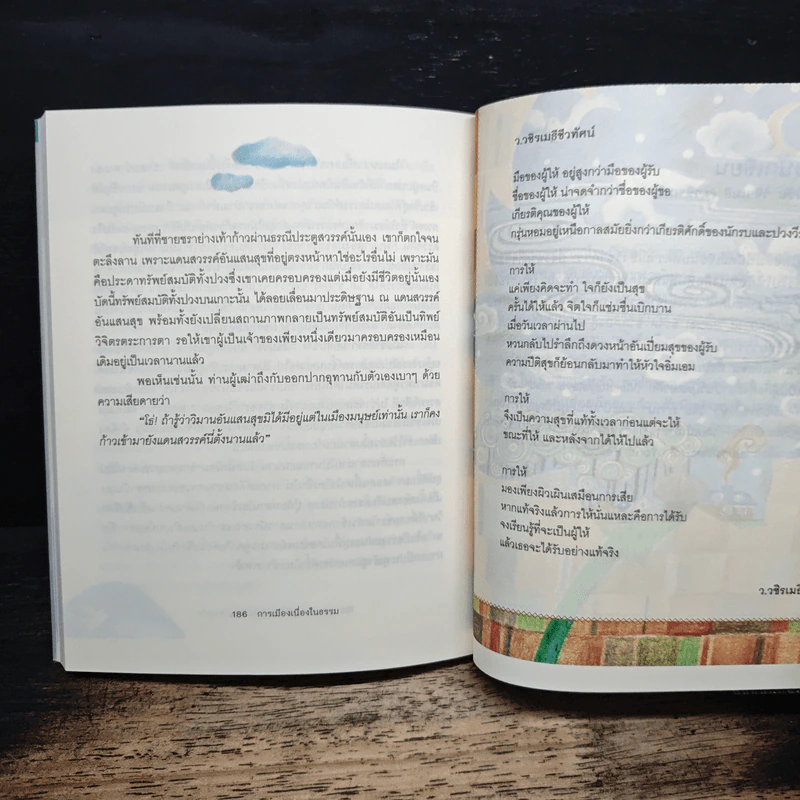 ทันทีที่ชายชราย่างเท้าก้าวผ่านธรณีประตูสวรรค์นั้นเอง เขาก็ตกใจจน
ตะลึงลาน เพราะแดนสวรรค์อันแสนสุขที่อยู่ตรงหน้าหาใช่อะไรอื่นไม่ เพราะมัน
คือประดาทรัพย์สมบัติทั้งปวงซึ่งเขาเคยครอบครองแต่เมื่อยังมีชีวิตอยู่นั้นเอง
บัดนี้ทรัพย์สมบัติทั้งปวงบนเกาะนั้น ได้ลอยเลื่อนมาประดิษฐาน ณ แดนสวรรค์
อันแสนสุข พร้อมทั้งยังเปลี่ยนสถานภาพกลายเป็นทรัพย์สมบัติอันเป็นทิพย์
วิจิตรตระการตา รอให้เขาผู้เป็นเจ้าของเพียงหนึ่งเดียวมาครอบครองเหมือน
เดิมอยู่เป็นเวลานานแล้ว
พอเห็นเช่นนั้น ท่านผู้เฒ่าถึงกับออกปากอุทานกับตัวเองเบาๆ ด้วย
ความเสียดายว่า
“โธ่! ถ้ารู้ว่าวิมานอันแสนสุขมิได้มีอยู่แต่ในเมืองมนุษย์เท่านั้น เราก็คง
ก้าวเข้ามายังแดนสวรรค์นี่ตั้งนานแล้ว”
186 การเมืองเนื่องในธรรม
ว.วชิรเมธีชีวทัศน์
มือของผู้ให้ อยู่สูงกว่ามือของผู้รับ
ชื่อของผู้ให้ น่าจดจำกว่าชื่อของผู้ขอ
เกียรติคุณของผู้ให้
กรุ่นหอมอยู่เหนือกาลสมัยยิ่งกว่าเกียรติศักดิ์ของนักรบและปวงวี
การให้
แค่เพียงคิดจะทำ ใจก็ยังเป็นสุข
ครั้นได้ให้แล้ว จิตใจก็แช่มชื่นเบิกบาน
เมื่อวันเวลาผ่านไป
หวนกลับไปรำลึกถึงดวงหน้าอันเปี่ยมสุขของผู้รับ
ความปีติสุขก็ย้อนกลับมาทำให้หัวใจอิ่มเอม
การให้
จึงเป็นความสุขที่แท้ทั้งเวลาก่อนแต่จะให้
ขณะที่ให้ และหลังจากได้ให้ไปแล้ว
การให้
มองเพียงผิวเผินเสมือนการเสีย
หากแท้จริงแล้วการให้นั่นแหละคือการได้รับ
จงเรียนรู้ที่จะเป็นผู้ให้
แล้วเธอจะได้รับอย่างแท้จริง
ว.วชิรเมธี